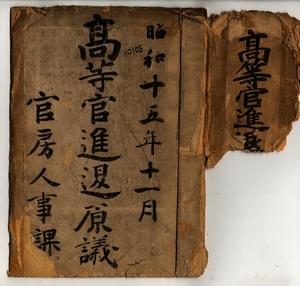 昭和十五年十一月
10105
高等官進退原議
官房人事課
高等官進